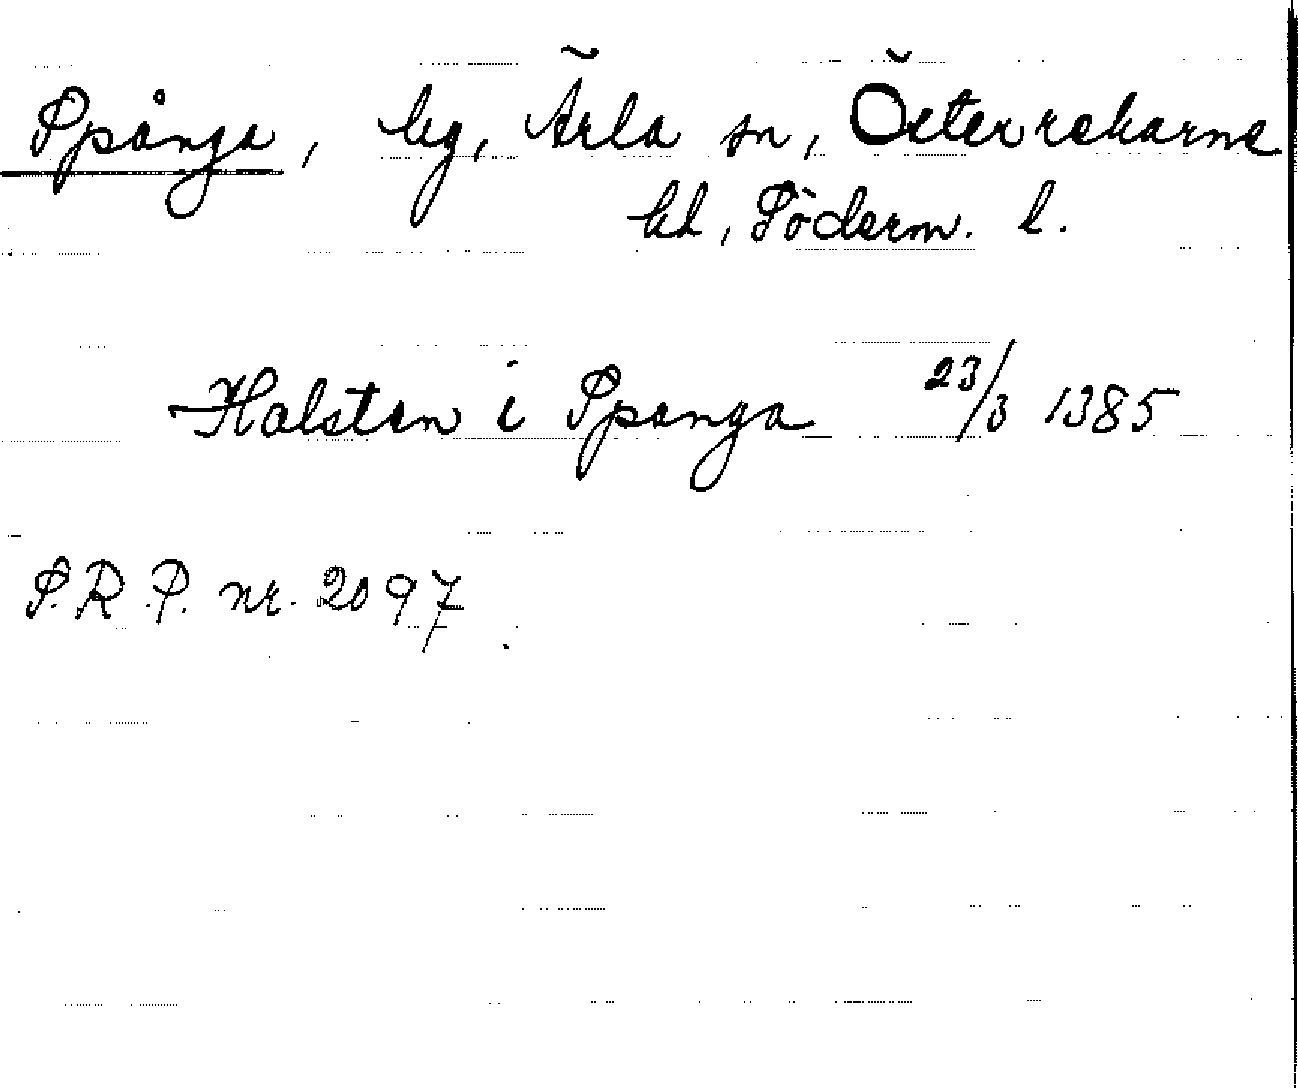 Spånga, by, Ärla sn, Österrekarne
hd, Söderm. l.
Halsten i Spanga 23/3 1385
S.R.P. nr. 2097